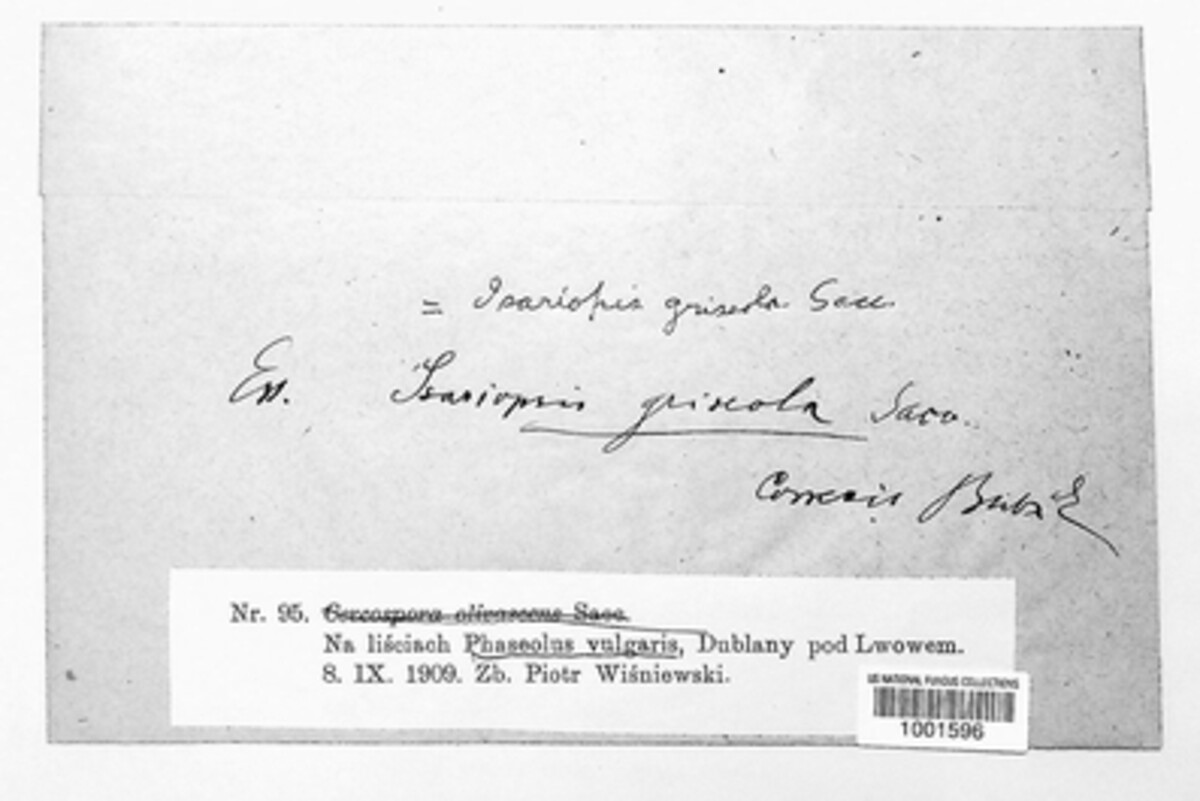 = Isariopsis griseola Sacc.
Isariopsis griseola Sacc.
Correxit Bubák
Nr. 95. Cercospora olivascens Sacc.
Na liściach Phaseolus vulgaris, Dublany pod Lwowem.
8. IX. 1909. Zb. Piotr Wiśniewski.
US NATIONAL FUNGUS COLLECTIONS
1001596